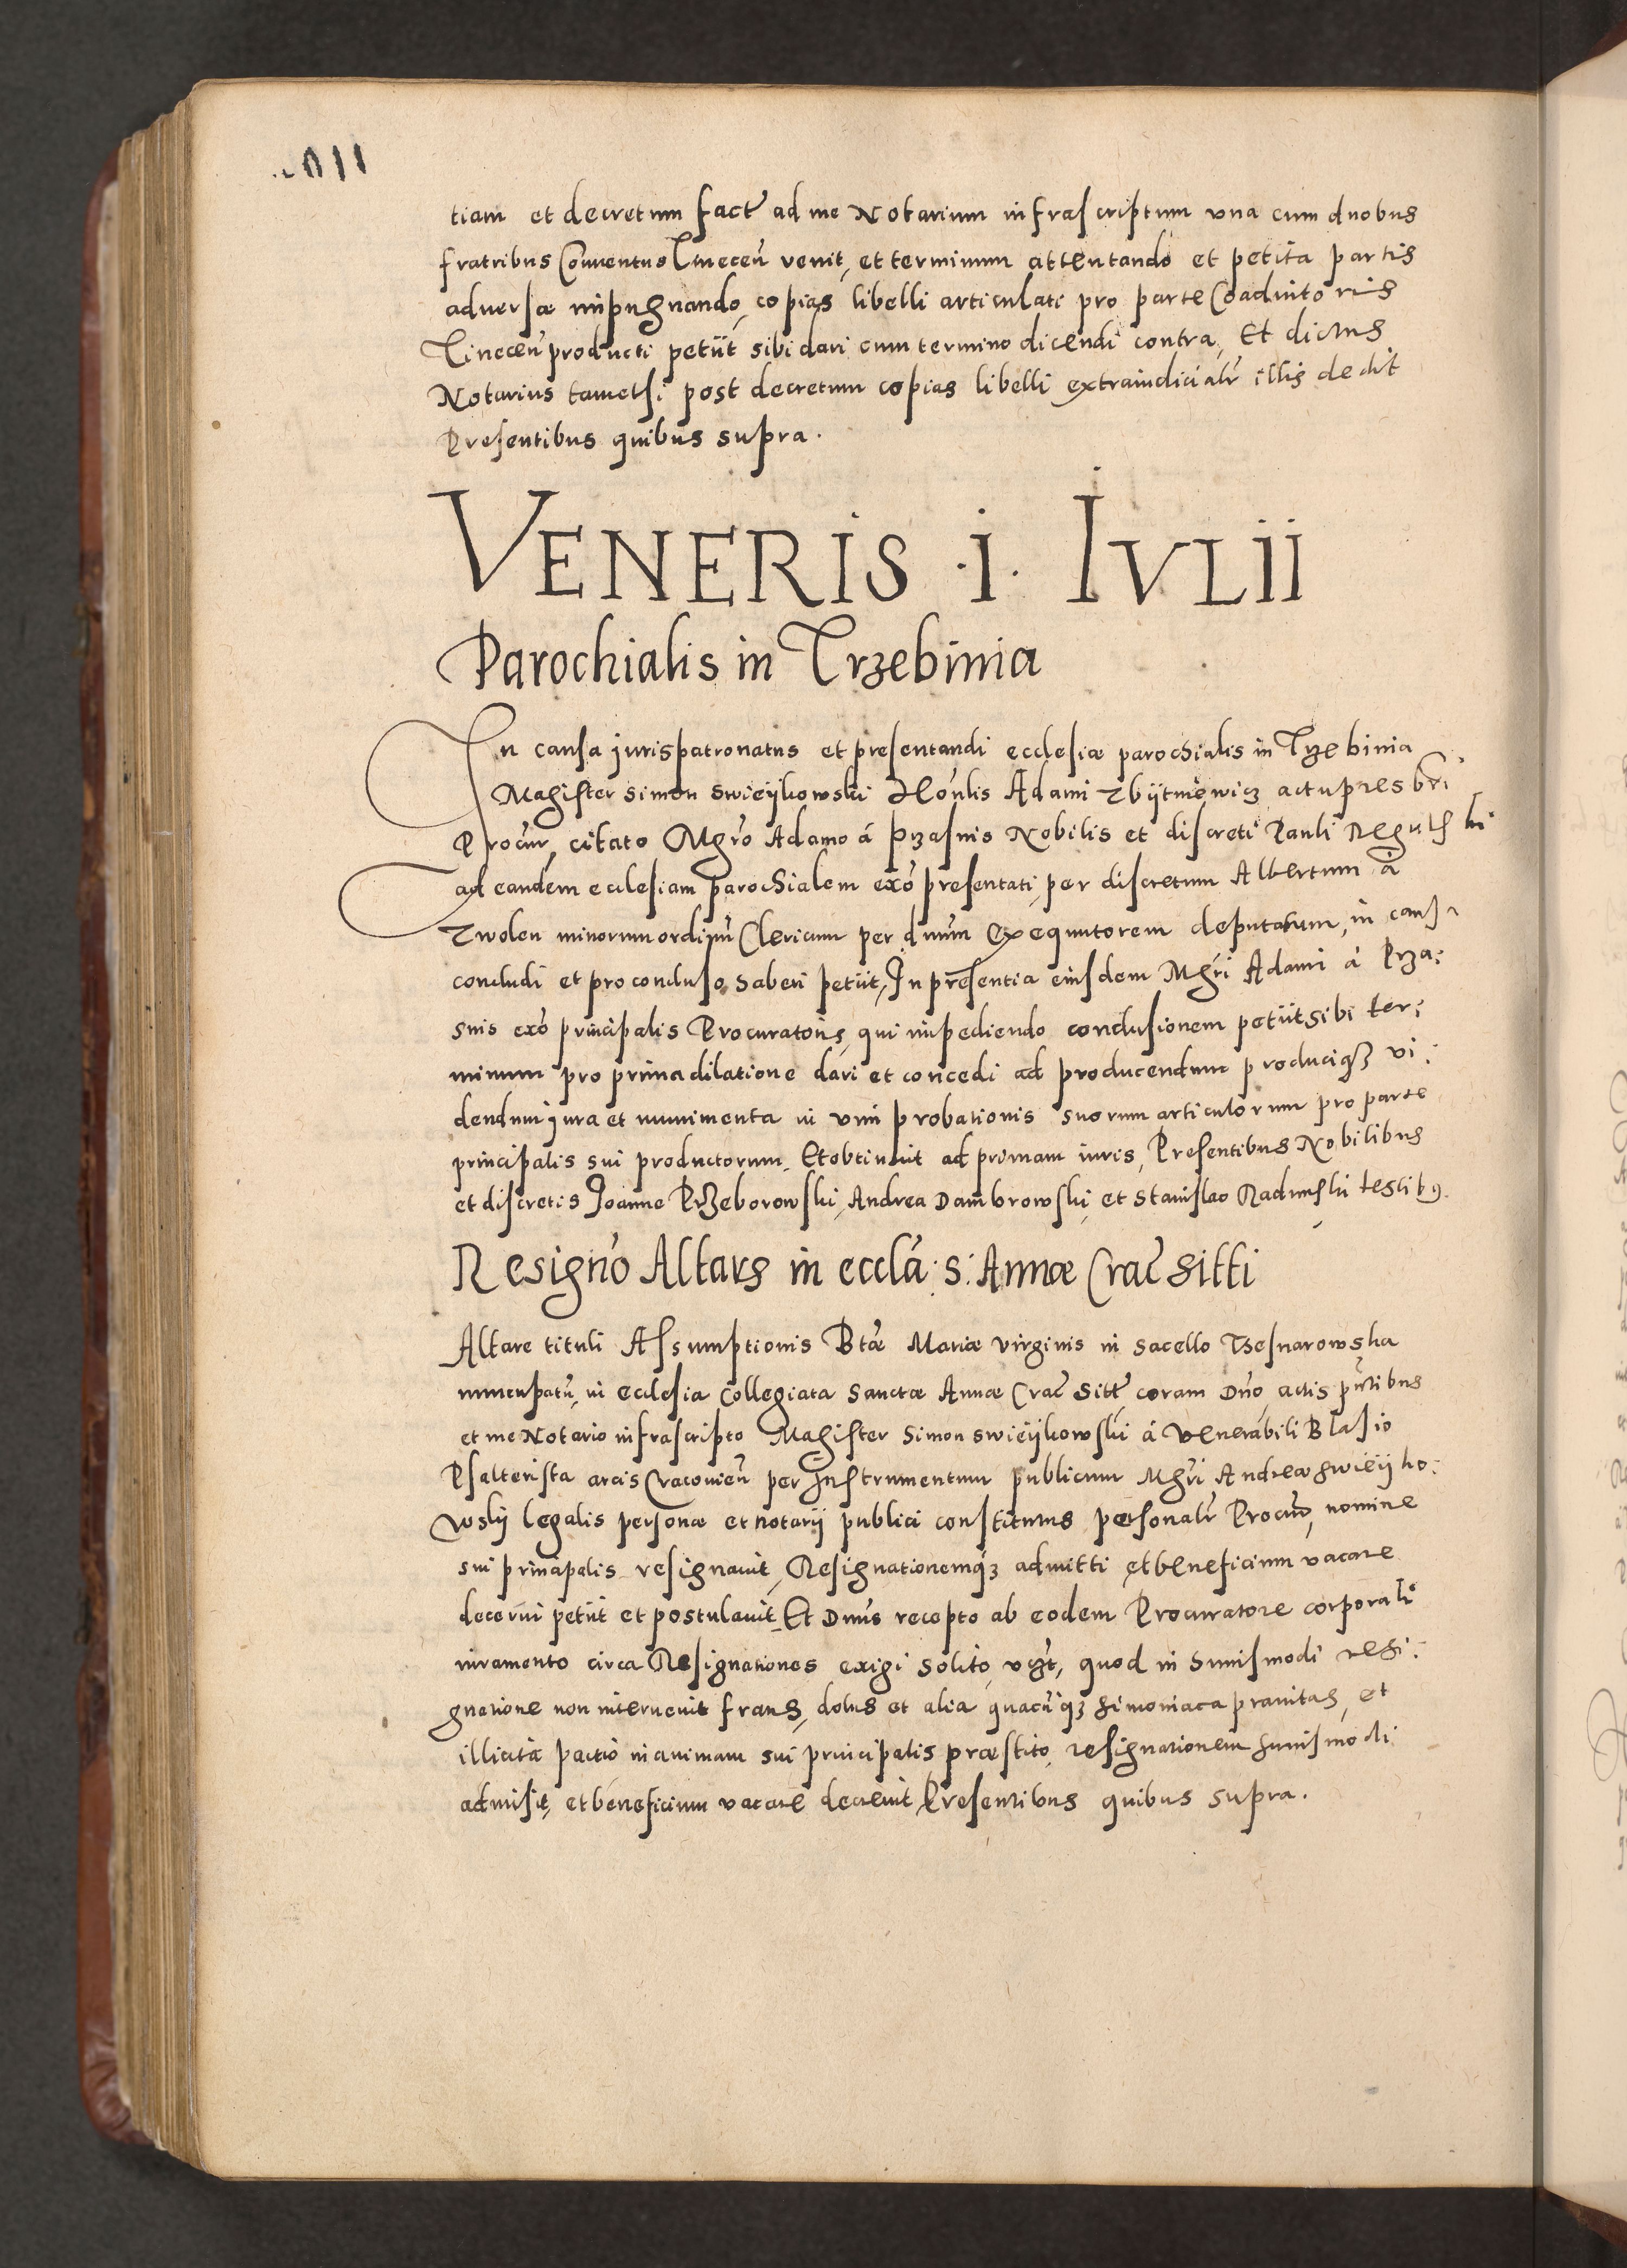 tiam et decretum fact̃ ad me Notarium infrascriptum vna cum duobus
fratribus Conuentus Tinecen̄ venit, et terminum attentando et petita partis
aduersæ impugnando, copias libelli articulati pro parte Coadiutoris
Tinecen̄ producti petiit sibi dari cum termino dicendi contra, Et dictus
Notarius tametsi post decretum copias libelli extraiudicialr̃ illis dedit
Presentibus quibus supra.
VENERIS ·i· IVLII
Parochialis in Trzebinia
In causa jurispatronatus et presentandi ecclesiæ parochialis in Trzebinia
Magister Simon Swieÿkowski Hon̄lis Adami Zbÿtniewicz actu presbr̄i
Procur̃, citato Mgr̃o Adamo á Przasnis Nobilis et discreti Pauli Regulski
ad eandem ecclesiam parochialem ex̃o presentati, per discretum Albertum á
Zwolen minorum ordinū Clericum per dnūm Exequutorem deputatum, in causa
concludi et pro concluso haberi petiit, In presentia eiusdem Mgr̃i Adami á Prza:
snis ex̃o principalis Procuratoris, qui impediendo conclusionem petiit sibi ter:
minum pro prima dilatione dari et concedi ad producendum produciq3 vi:
dendum jura et munimenta in vim probationis suorum articulorum pro parte
principalis sui productorum, Et obtinuit ad primam iuris, Presentibus Nobilibus
et discretis Joanne Przeborowski, Andrea Dambrowski, et Stanislao Radunski testib9.
Resign̄o Altaris in eccl̄a: S: Annæ Crac̃ sitti
Altare tituli Assumptionis Btæ Mariæ Virginis in sacello Thesnarowska
nuncupatū, in ecclesia Collegiata Sanctæ Annæ Crac̃ sitt̃, coram Dn̄o, actis pn̄tibus
et me Notario infrascripto Magister Simon Swieÿkowski á Venerabili Blasio
Psalterista arcis Cracovien̄ per Instrumentum publicum Mgr̃i Andreæ Swieÿko:
wsky legalis personæ et notarij publici constitutus personalr̃ Procur̃, nomine
sui principalis resignauit, Resignationemq3 admitti et beneficium vacare
decerni petiit et postulauit, Et Dnūs recepto ab eodem Procuratore corporali
iuramento circa Resignationes exigi solito, vz̃t, quod in huiusmodi resi:
gnatione non interuenit fraus, dolus et alia quæcūq3 simoniaca prauitas, et
illicita pactio in animam sui principalis præstito, resignationem huiusmodi
admisit, et beneficium vacare decreuit, Presentibus quibus supra.